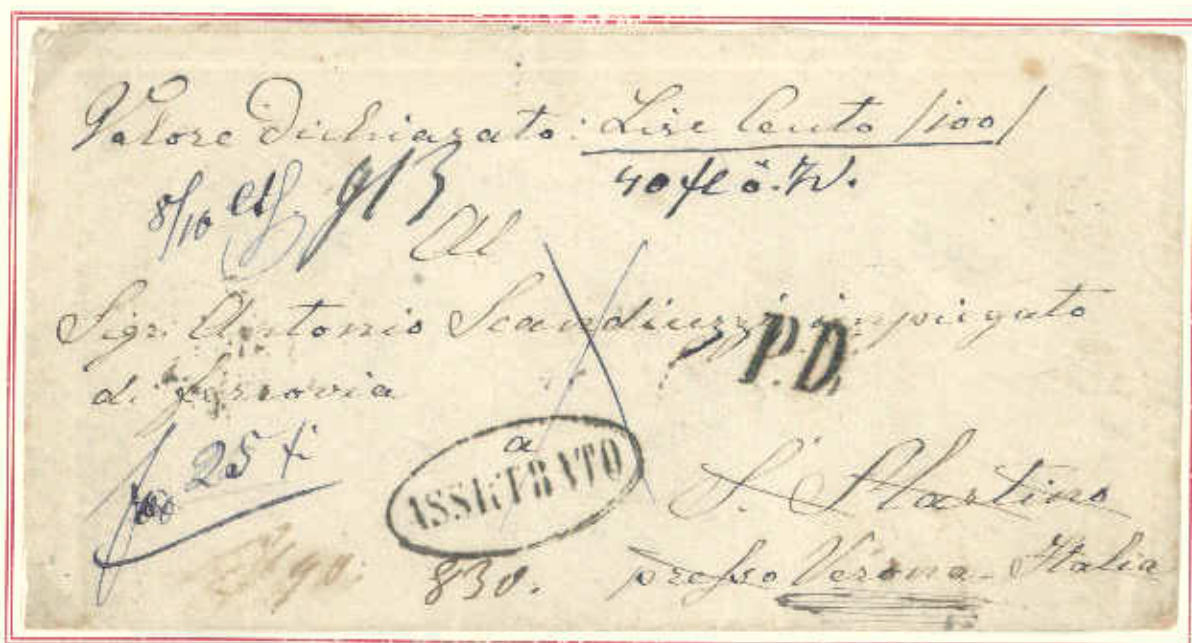 Valore Dichiarato: Lire Cento /100/
40 fl ö. W.
8/10 913
Al
Sigr. Antonio Scandiuzzi impiegato
di ferrovia
P.D.
25
a
ASSICURATO
S. Martino
830.
presso Verona - Italia